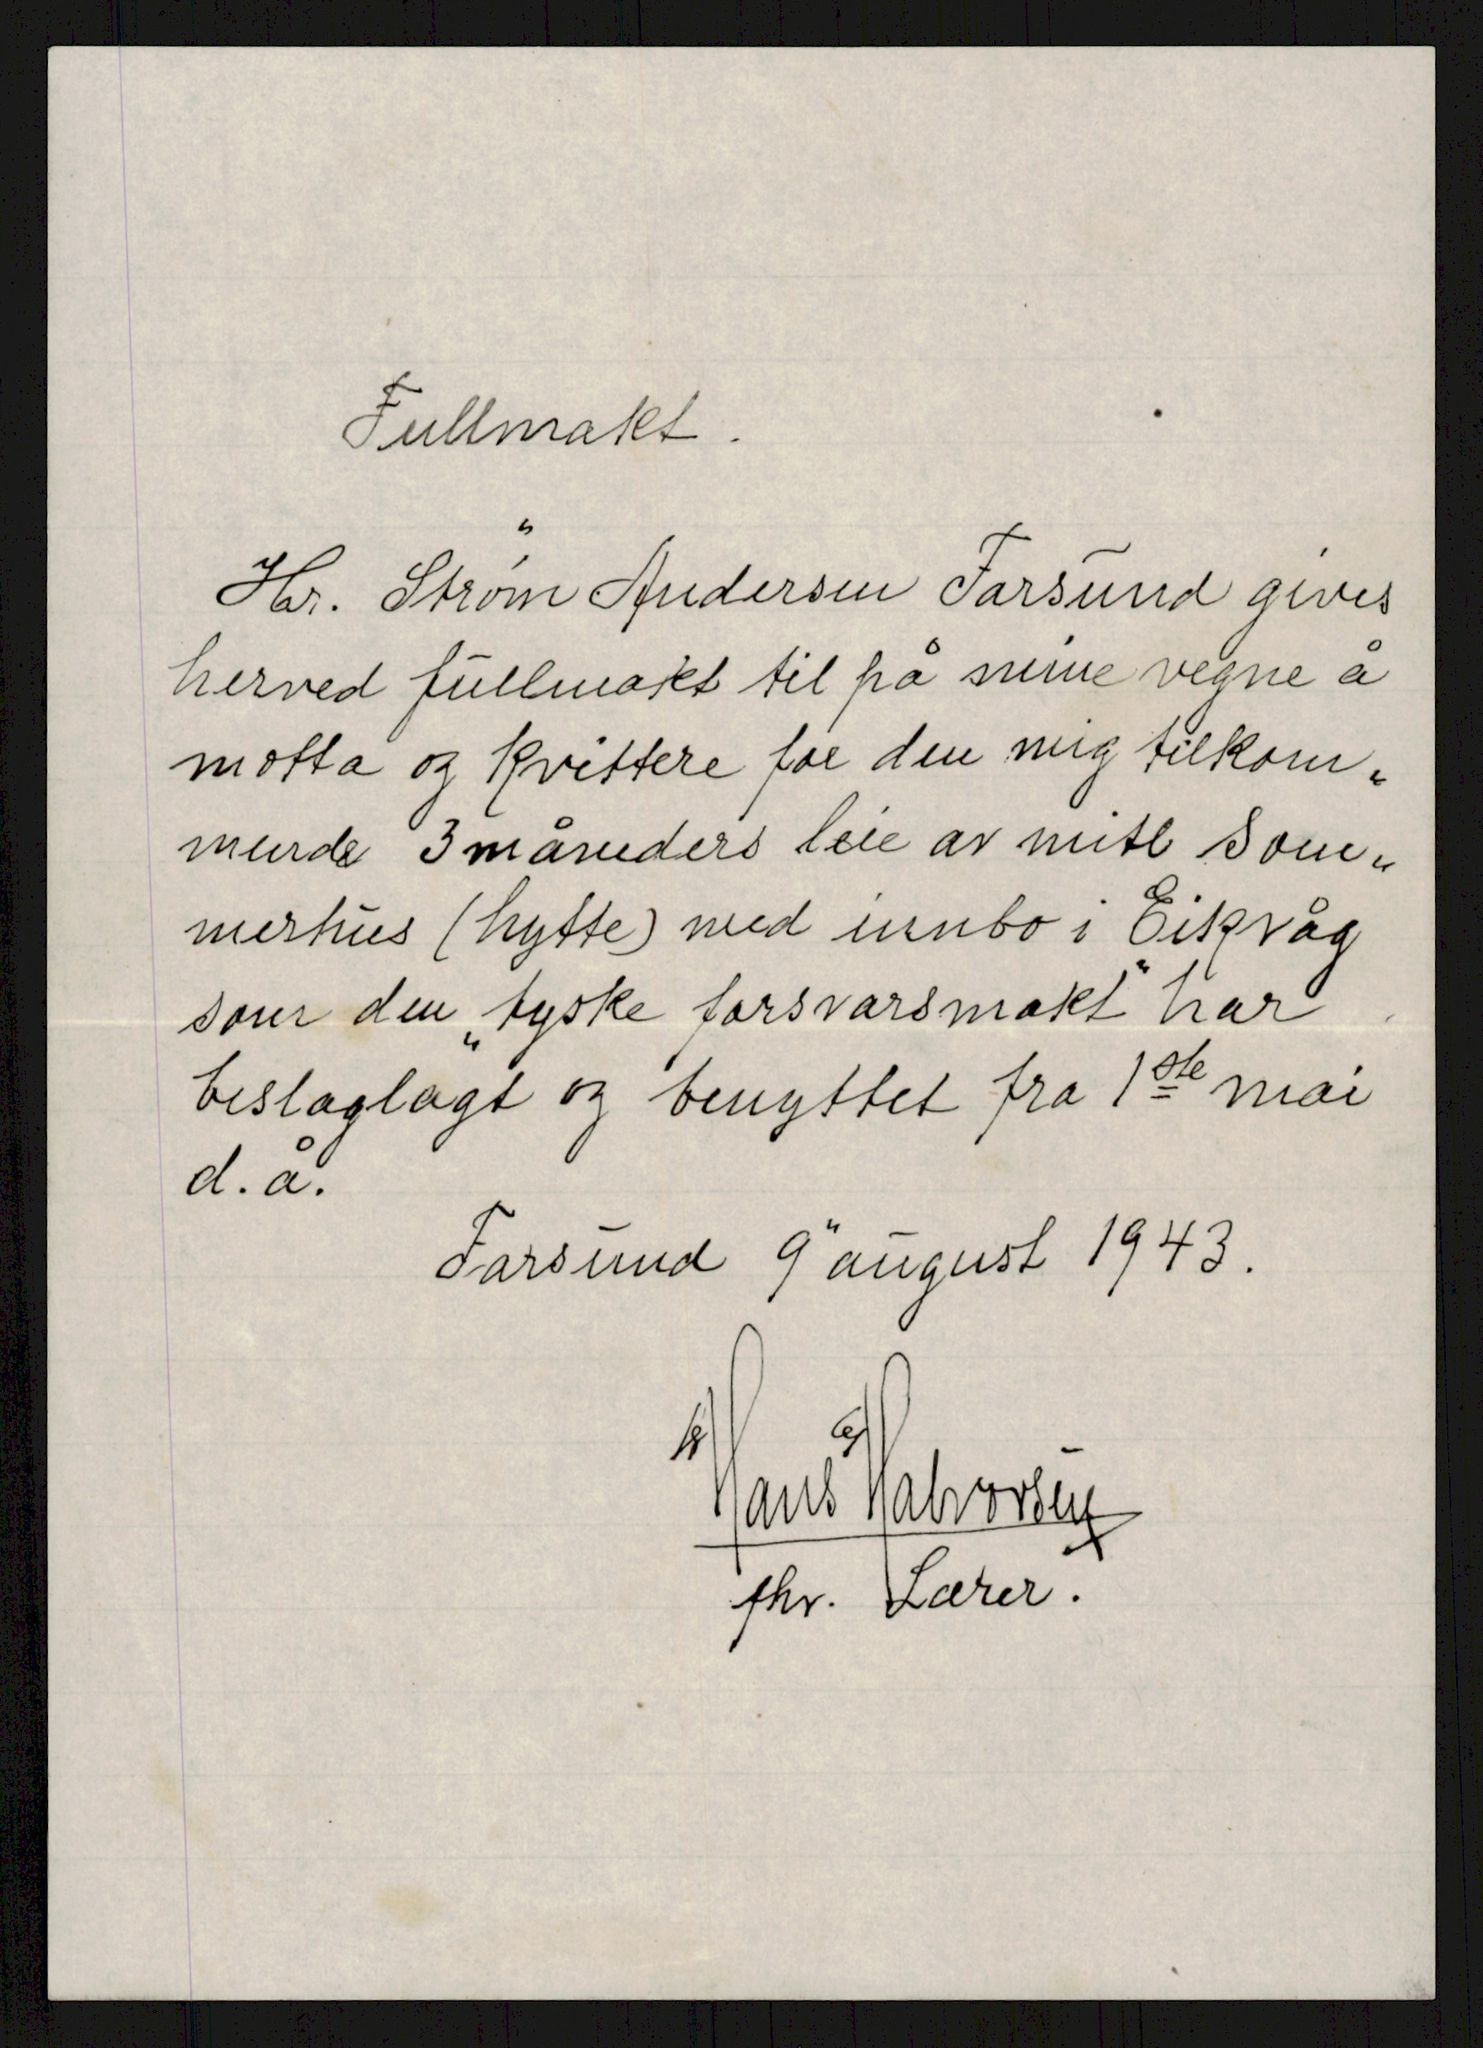 Fullmakt.
"
Hr. Strøm Andersen Farsund gives
herved fullmakt til på mine vegne å
motta og kvittere for den mig tilkom„
mende 3 måneders leie av mitt Som„
merhus (hytte) med innbo i Eikvåg
som den „tyske forsvarsmakt" har
beslaglagt og benyttet fra 1ste mai
d.å.
Farsund 9" august 1943.
Hans Halvorsen
fhv. Lærer.